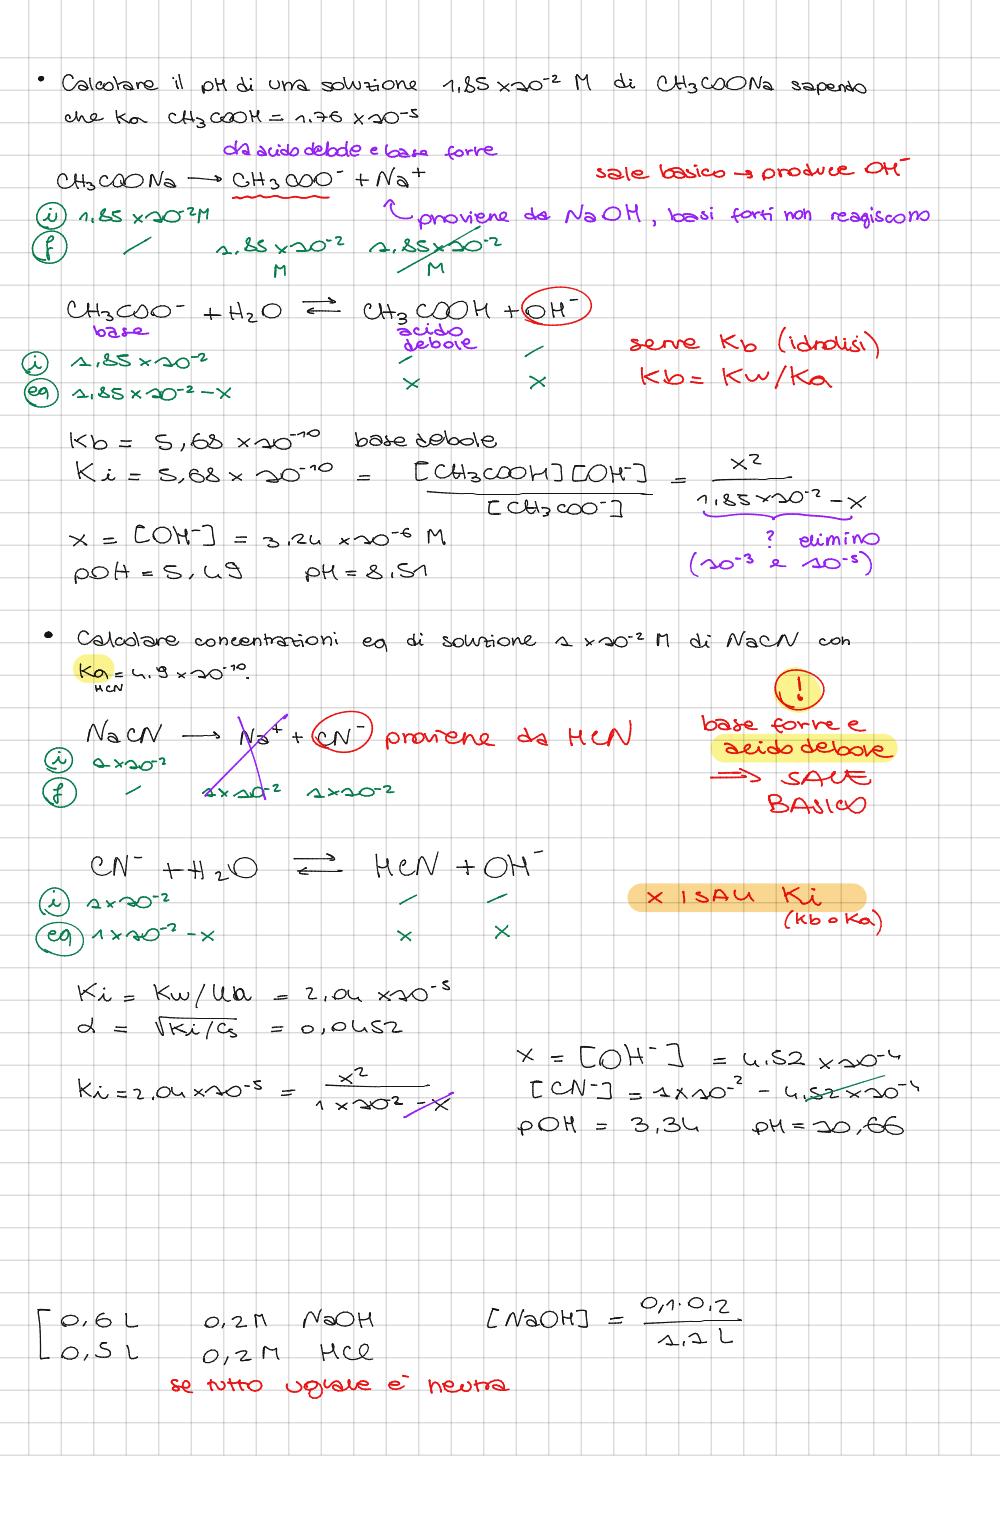 • Calcolare il pH di una soluzione 1,85 x 10⁻² M di CH₃COONa sapendo
che Ka CH₃COOH = 1.76 x 10⁻⁵
da acido debole e base forte
CH₃COONa → CH₃COO⁻ + Na⁺
sale basico → produce OH⁻
proviene da NaOH, basi forti non reagiscono
i 1.85 x 10⁻² M
f / 1.85 x 10⁻² M 1.85 x 10⁻² M
CH₃COO⁻ + H₂O ⇌ CH₃COOH + OH⁻
base acido debole
i 1.85 x 10⁻² / /
eq 1.85 x 10⁻² - x x x
serve Kb (idrolisi)
Kb = Kw/Ka
Kb = 5,68 x 10⁻¹⁰ base debole
Ki = 5,68 x 10⁻¹⁰ = [CH₃COOH][OH⁻] / [CH₃COO⁻] = x² / 1.85 x 10⁻² - x
? elimino
(10⁻³ e 10⁻⁵)
x = [OH⁻] = 3.24 x 10⁻⁶ M
pOH = 5,49 pH = 8,51
• Calcolare concentrazioni eq di soluzione 1 x 10⁻² M di NaCN con
Ka HCN = 4.9 x 10⁻¹⁰.
!
NaCN → Na⁺ + CN⁻ proviene da HCN
base forte e
acido debole
⇒ SALE
BASICO
i 1 x 10⁻²
f / 1 x 10⁻² 1 x 10⁻²
CN⁻ + H₂O ⇌ HCN + OH⁻
i 1 x 10⁻² / /
eq 1 x 10⁻² - x x x
x I SALI Ki
(Kb o Ka)
Ki = Kw/Ka = 2,04 x 10⁻⁵
α = √Ki/Cs = 0,0452
Ki = 2,04 x 10⁻⁵ = x² / 1 x 10² - x
x = [OH⁻] = 4.52 x 10⁻⁴
[CN⁻] = 1 x 10⁻² - 4.52 x 10⁻⁴
pOH = 3,34 pH = 10,66
0,6 L 0,2 M NaOH
0,5 L 0,2 M HCl
[NaOH] = 0,1 · 0,2 / 1,1 L
se tutto uguale è neutra